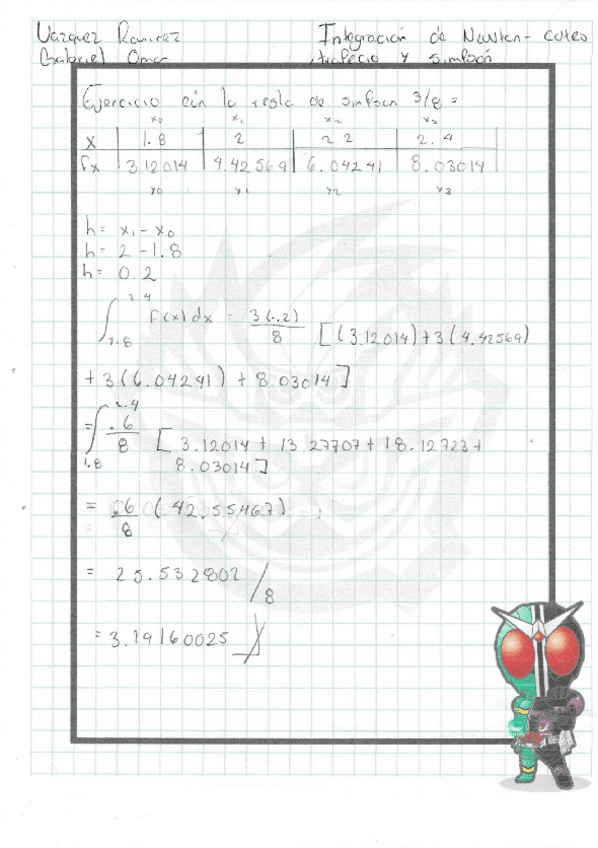 Vazquez Ramirez
Integración de Newton-cotes
Gabriel Omar
,trapecio y simpson
Ejercicio con la regla de simpson 3/8 =
x0 x1 x2 x3
x 1.8 2 2.2 2.4
fx 3.12014 4.42569 6.04241 8.03014
y0 y1 y2 y3
h = x1 - x0
h = 2 - 1.8
h = 0.2
∫ 2.4 1.8 f(x)dx = 3(.2)/8 [(3.12014)+3(4.42569)
+ 3(6.04241) + 8.03014]
= ∫ 2.4 1.8 .6/8 [3.12014 + 13.27707 + 18.12723 +
8.03014]
= .6/8 (42.55467)
= 25.532802/8
= 3.19160025